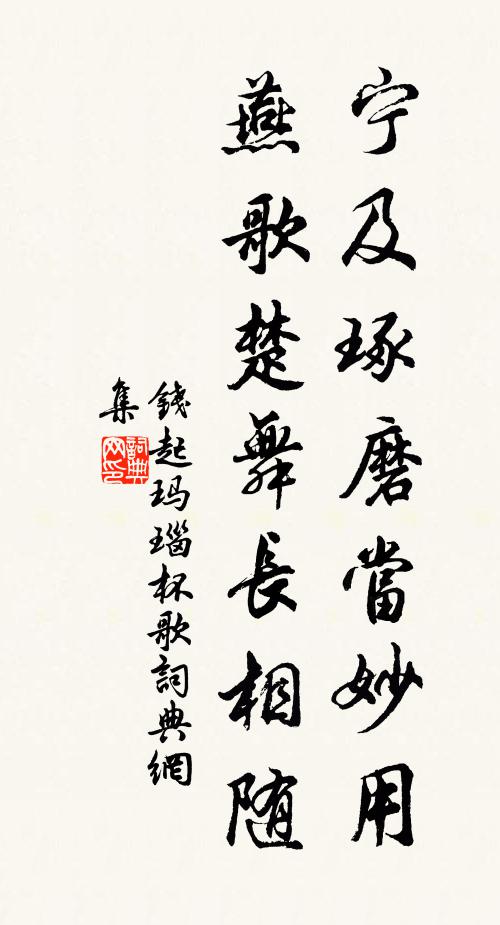 宁及琢磨當妙用
燕歌楚舞長相随
錢起玛瑙杯歌詞典網
集
詞典
网印